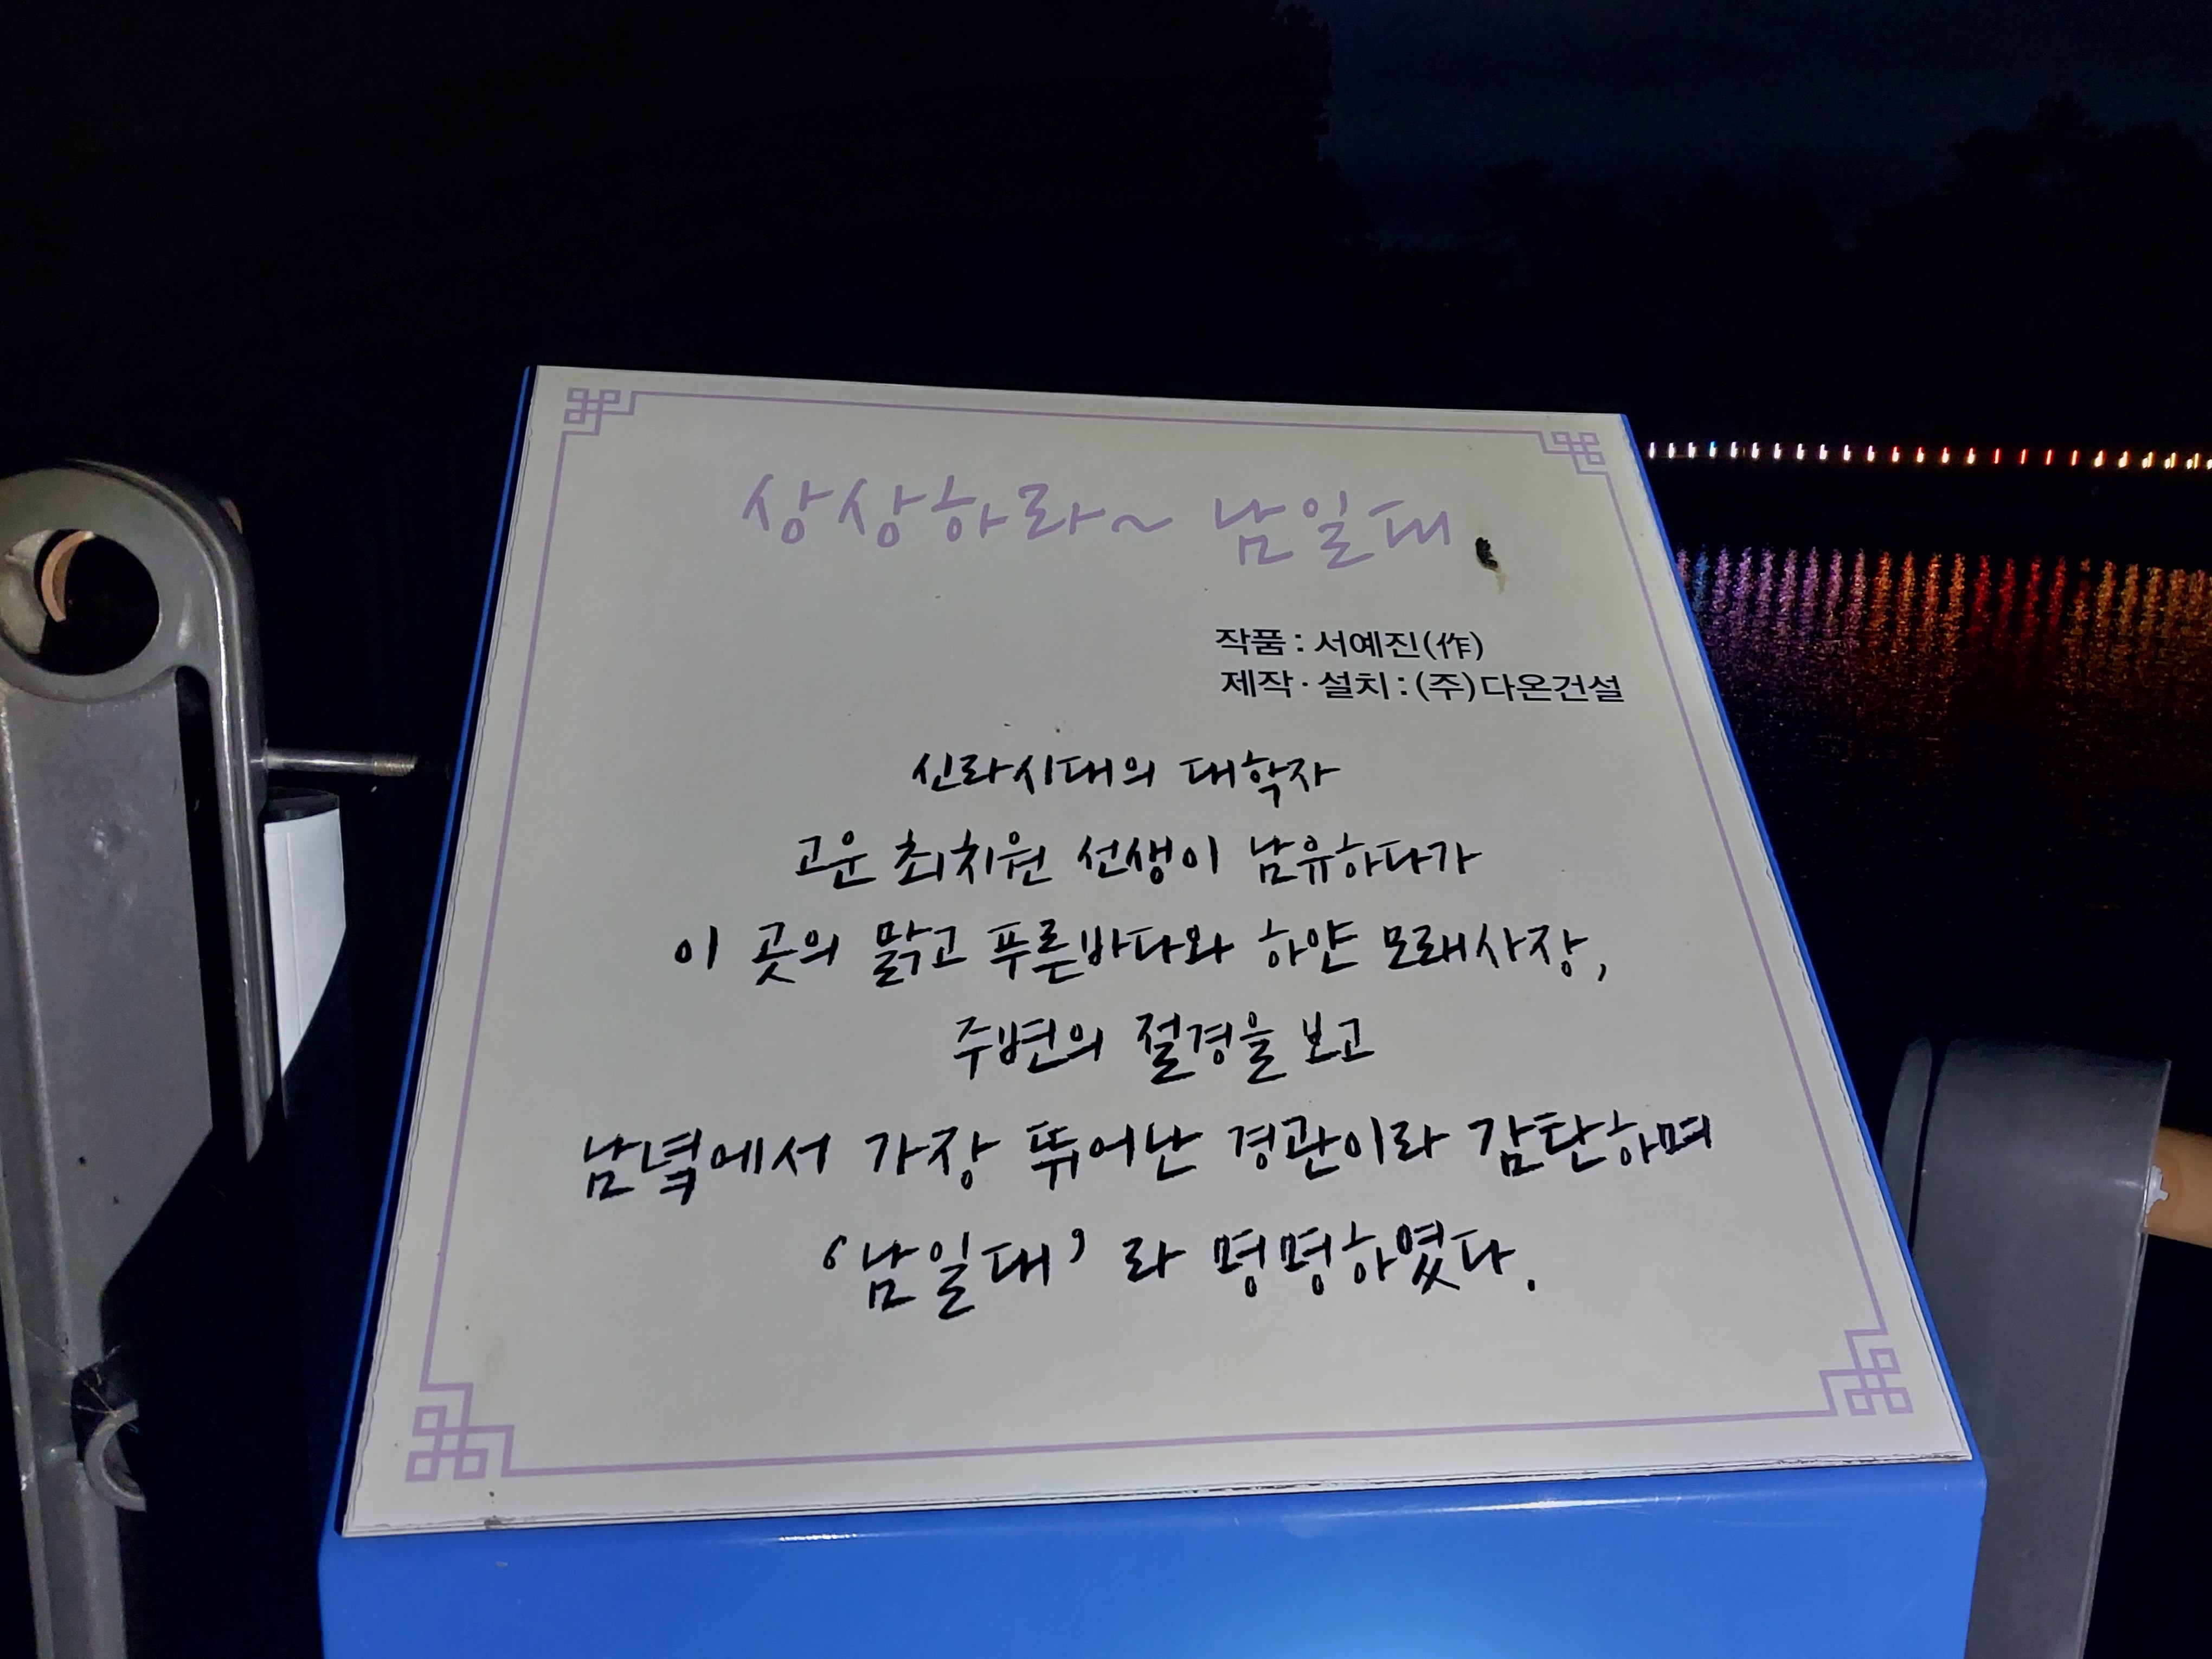 상상하라~ 남일대
작품 : 서예진(作)
제작 · 설치 : (주)다온건설
신라시대의 대학자
고운 최치원 선생이 남유하다가
이 곳의 맑고 푸른바다와 하얀 모래사장,
주변의 절경을 보고
남녘에서 가장 뛰어난 경관이라 감탄하며
‘남일대’ 라 명명하였다.